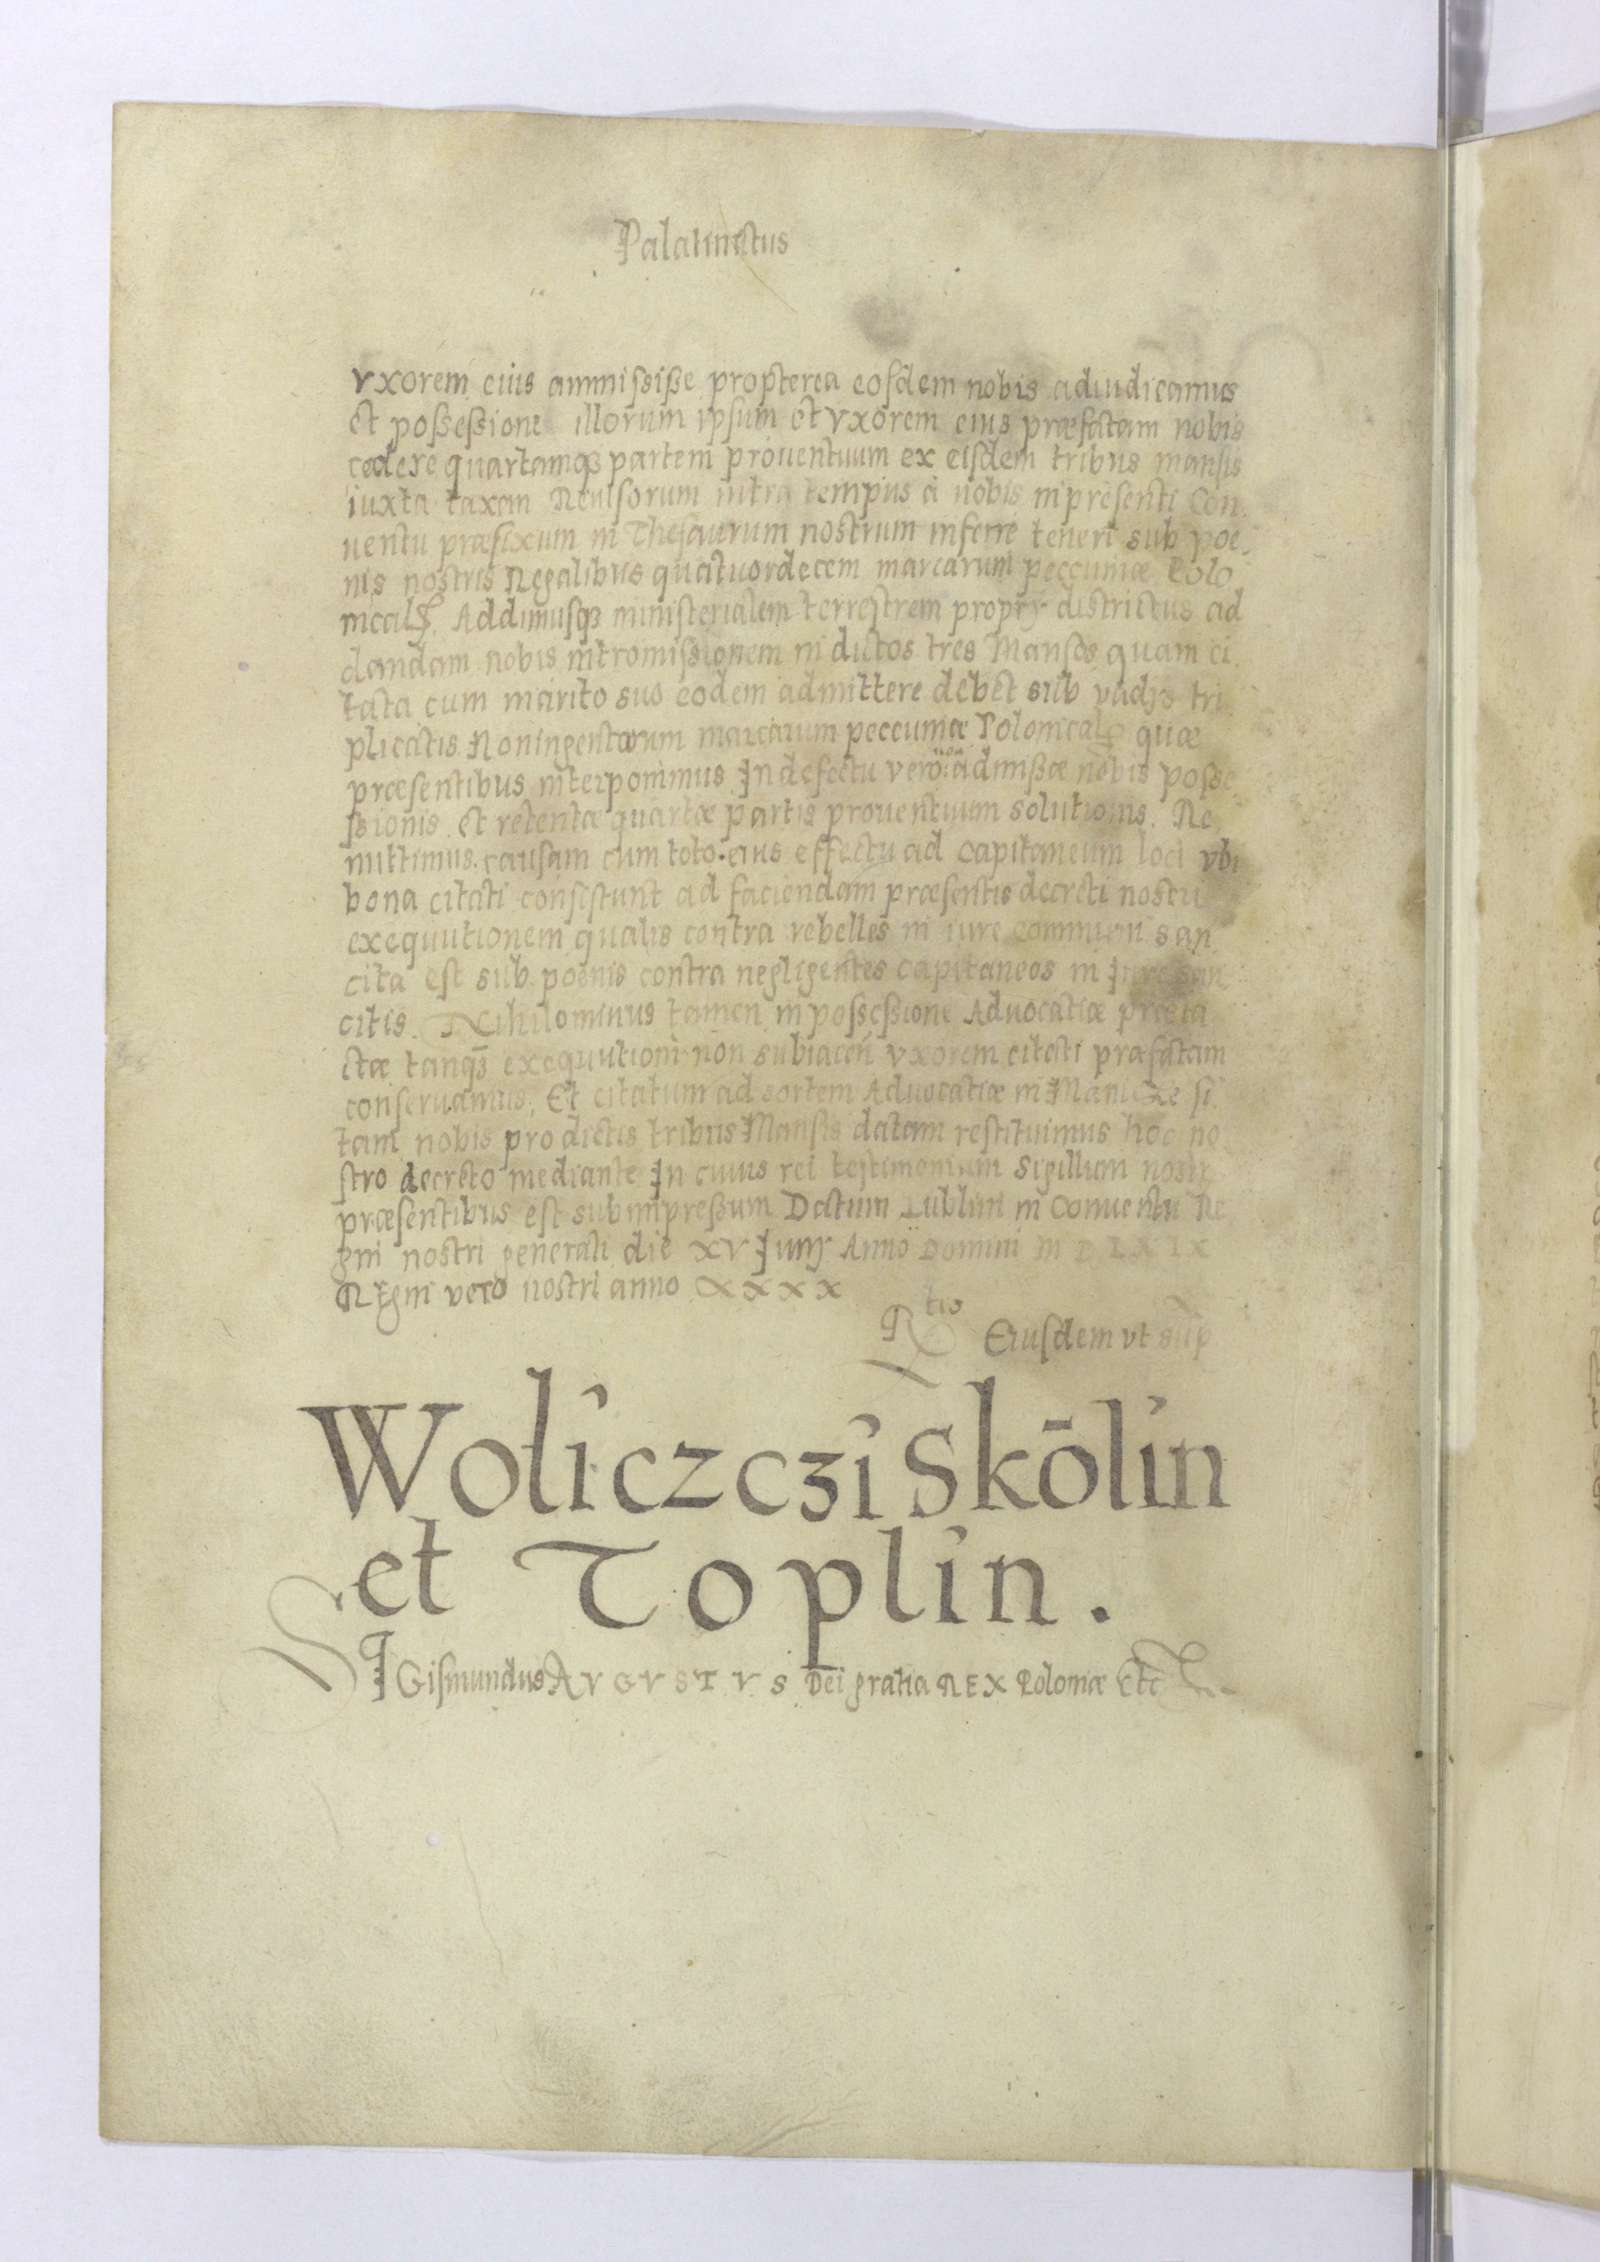 Palatinatus
vxorem eius ammisisße propterea eosdem nobis adiudicamus
et poßeßione illorum ipsum et vxorem eius præfatam nobis
cedere quartamqꝫ partem prouentuum ex eisdem tribus mansis
iuxta taxam Reuisorum intra tempus a nobis in presenti Con
uentu præfixum in Thesaurum nostrum inferre teneri sub poe
nis nostris Regalibus quatuordecem marcarum peccuniæ Polo
nical. Addimusqꝫ ministerialem terrestrem proprij districtus ad
dandam nobis intromißionem in dictos tres Mansos quam ci
tata cum marito suo eodem admittere debet sub vadijs tri
plicatis Noningentarum marcarum peccuniæ Polonical quæ
præsentibus interponimus In defectu vero non admißæ nobis posse
ßionis et retentæ quartæ partis prouentuum solutionis. Re
mittimus causam cum toto eius effectu ad Capitaneum loci vbi
bona citati consistunt ad faciendam præsentis decreti nostri
exequutionem qualis contra rebelles in iure communi san
cita est sub poenis contra negligentes capitaneos in Jure san
citis. Nihilominus tamen in possessione Aduocatiæ præta
ctæ tanqꝫ exequutioni non subiacen vxorem citati præfatam
conseruamus, Et citatum ad sortem Aduocatiæ in si
tam nobis pro dictis tribus Mansis datam restituimus hoc no
stro decreto mediante In cuius rei testimonium Sigillum nostr
præsentibus est subimpreßum Datum Lublini in Conuentu Re
gni nostri generali die XV Junij Anno Domini M D L X I X
Regni vero nostri anno X X X X
Rtio Eiusdem vt sup
Woliczczi Skōlin
et Toplin.
SIGismundus AVGVSTVS Dei gratia REX Poloniæ Etc